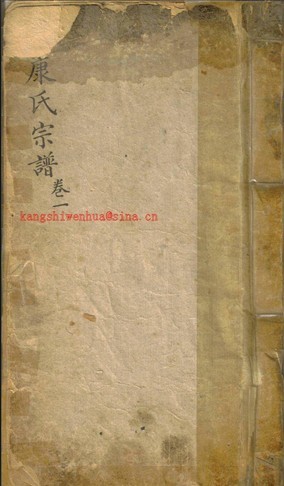 康氏宗譜
卷一
kangshiwenhua@sina.cn